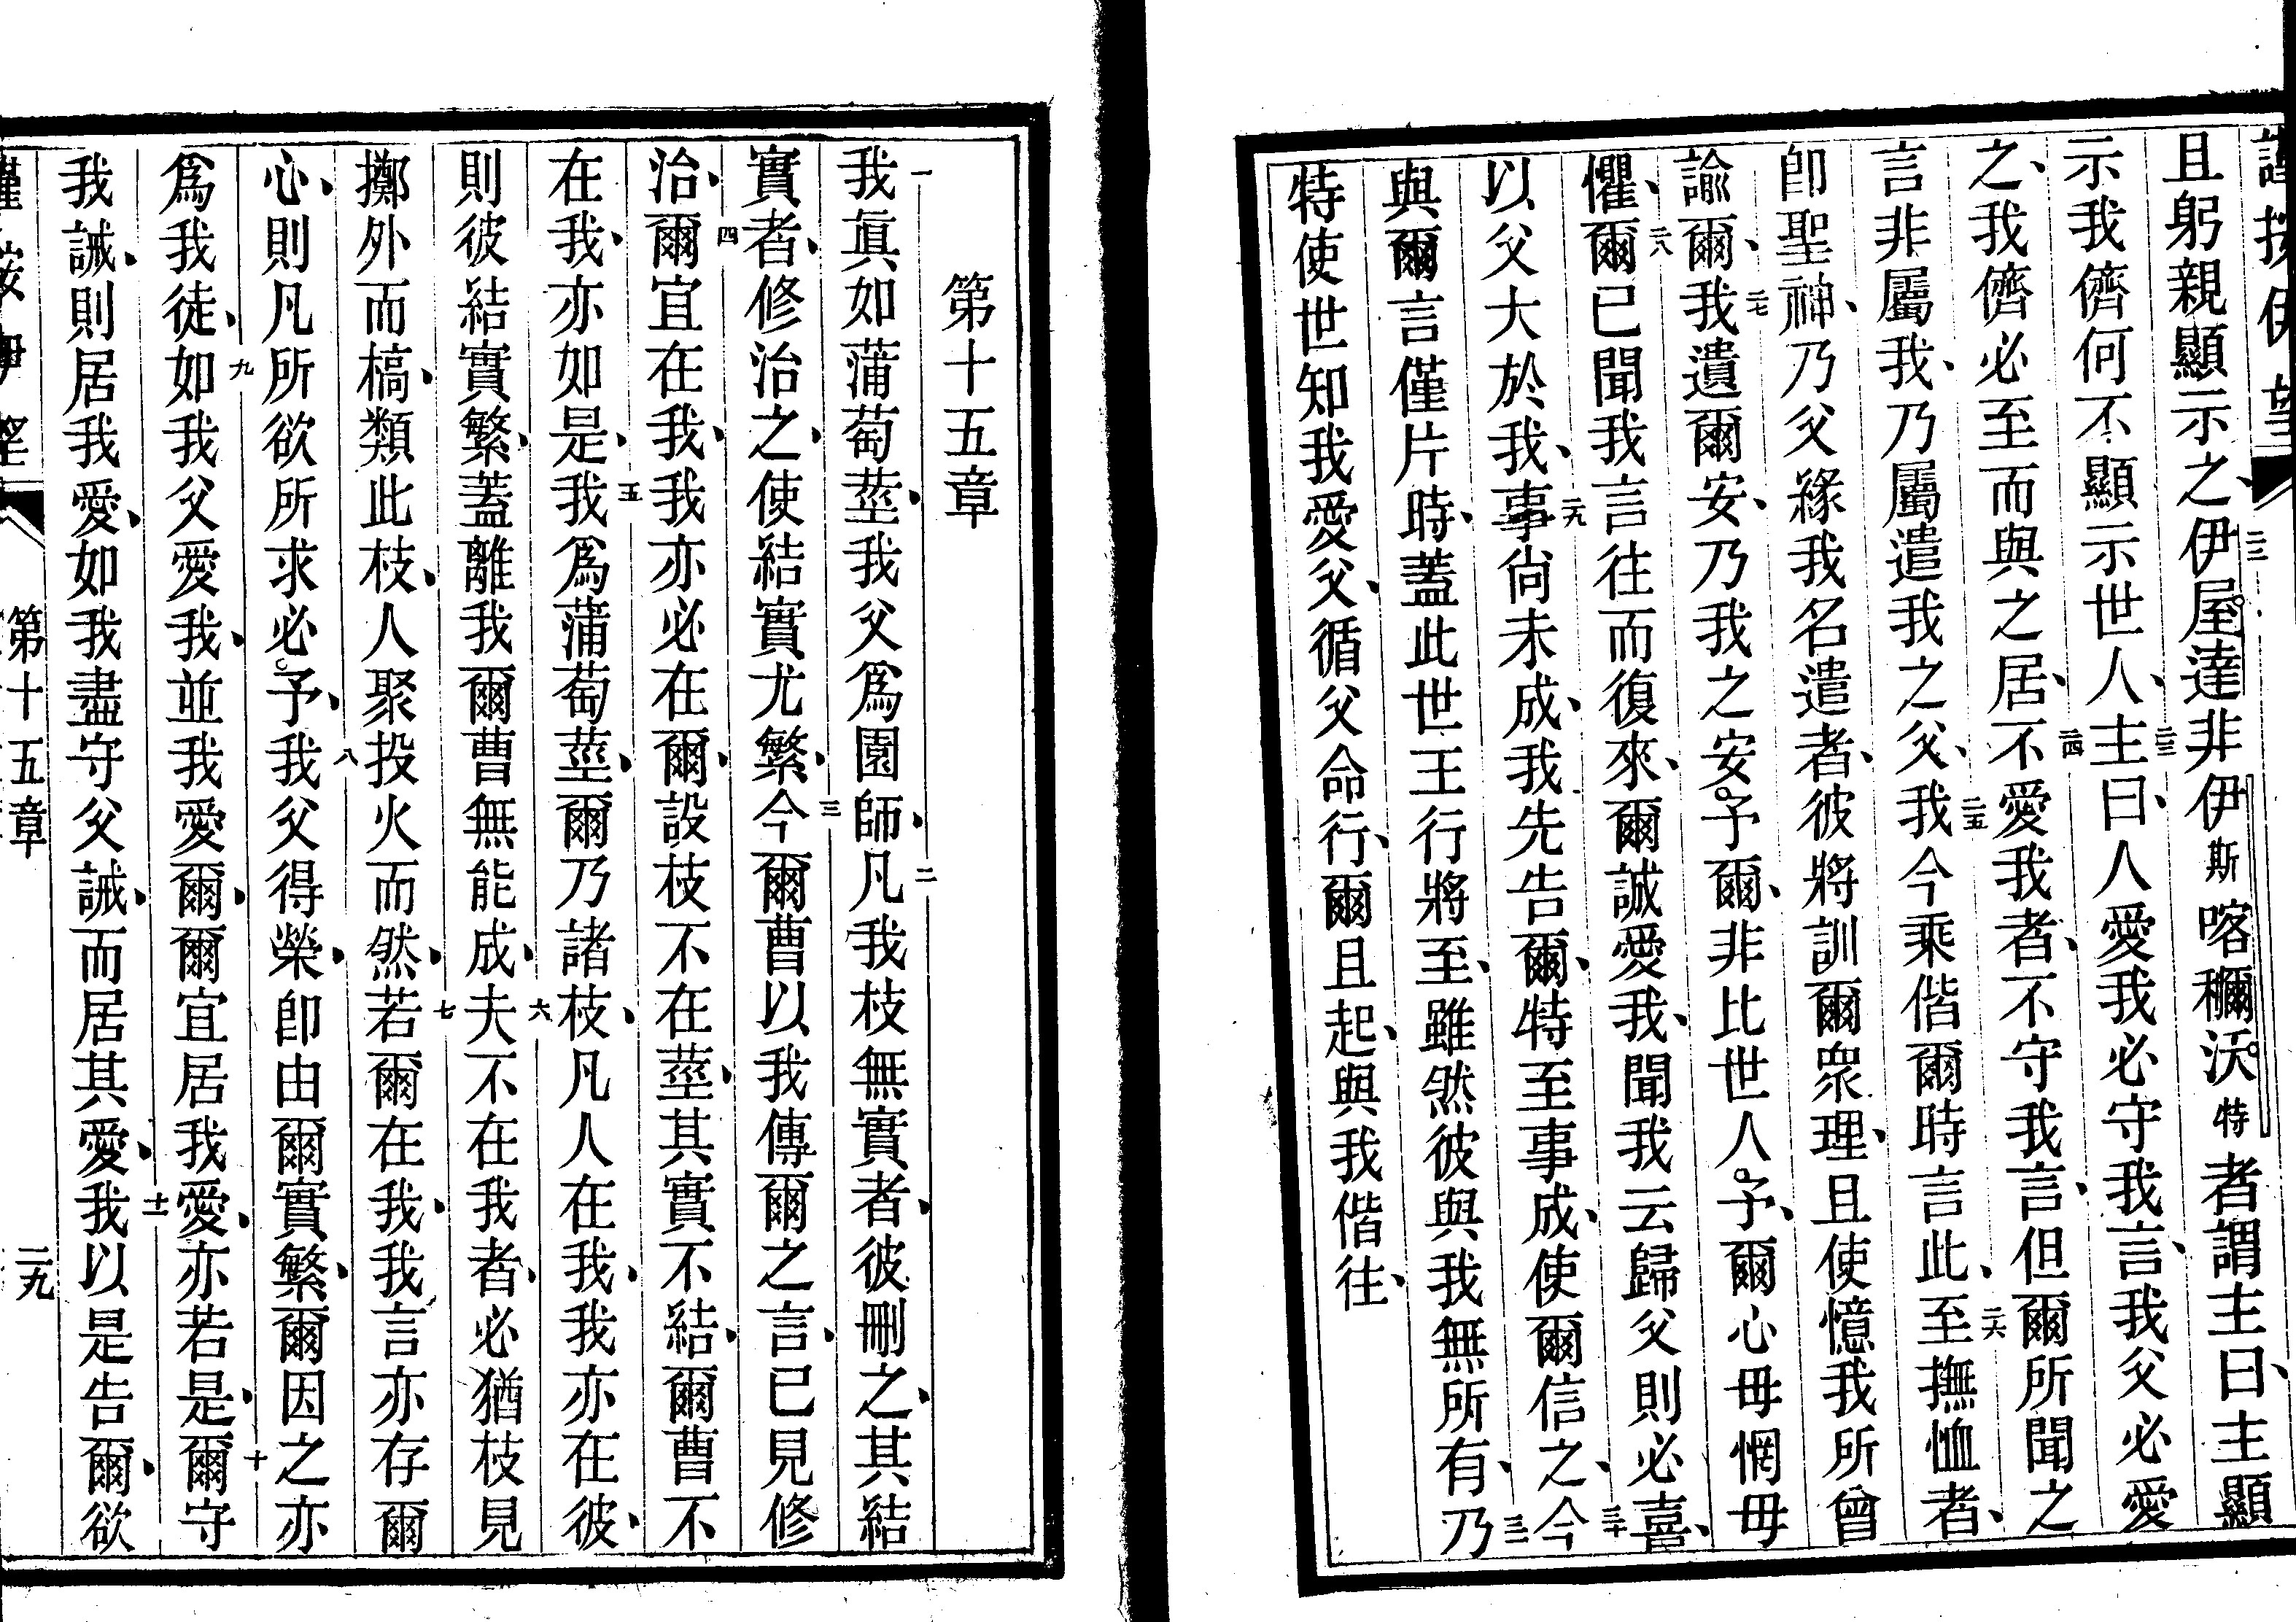 謹按伊望
且躬親顯示之、二二伊屋達非伊斯喀穪沃特者謂主曰、主顯
示我儕何不顯示世人、二三主曰、人愛我必守我言、我父必愛
之、我儕必至而與之居、二四不愛我者、不守我言、但爾所聞之
言非屬我、乃屬遣我之父、二五我今乘偕爾時言此、二六至撫恤者、
卽聖神、乃父緣我名遣者、彼將訓爾衆理、且使憶我所曾
諭爾、二七我遺爾安、乃我之安予爾、非比世人予、爾心毋惘毋
懼、二八爾已聞我言往而復來、爾誠愛我、聞我云歸父則必喜、
以父大於我、二九事尙未成、我先告爾、特至事成、使爾信之、三十今
與爾言僅片時、蓋此世王行將至、雖然彼與我無所有、三一乃
特使世知我愛父、循父命行、爾且起、與我偕往、
第十五章
一我眞如蒲萄莖、我父爲園師、二凡我枝無實者、彼刪之、其結
實者、修治之、使結實尤繁、三今爾曹以我傳爾之言、已見修
治、四爾宜在我、我亦必在爾、設枝不在莖、其實不結、爾曹不
在我、亦如是、五我爲蒲萄莖、爾乃諸枝、凡人在我、我亦在彼、
則彼結實繁、蓋離我爾曹無能成、六夫不在我者、必猶枝見
擲外而槁、類此枝、人聚投火而然、七若爾在我、我言亦存爾
心、則凡所欲所求必予、八我父得榮、卽由爾實繁、爾因之亦
爲我徒、九如我父愛我、並我愛爾、爾宜居我愛、亦若是、十爾守
我誡、則居我愛、如我盡守父誡、而居其愛、十一我以是告爾、欲
第十五章
二九